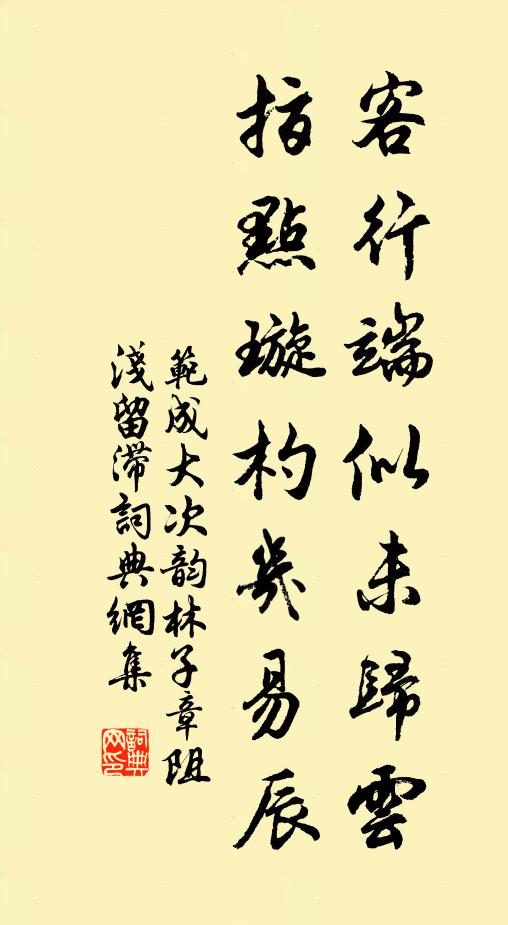 客行端似未歸雲
指點璇杓幾易辰
範成大次韵林子章阻
淺留滯詞典網集
詞典网印